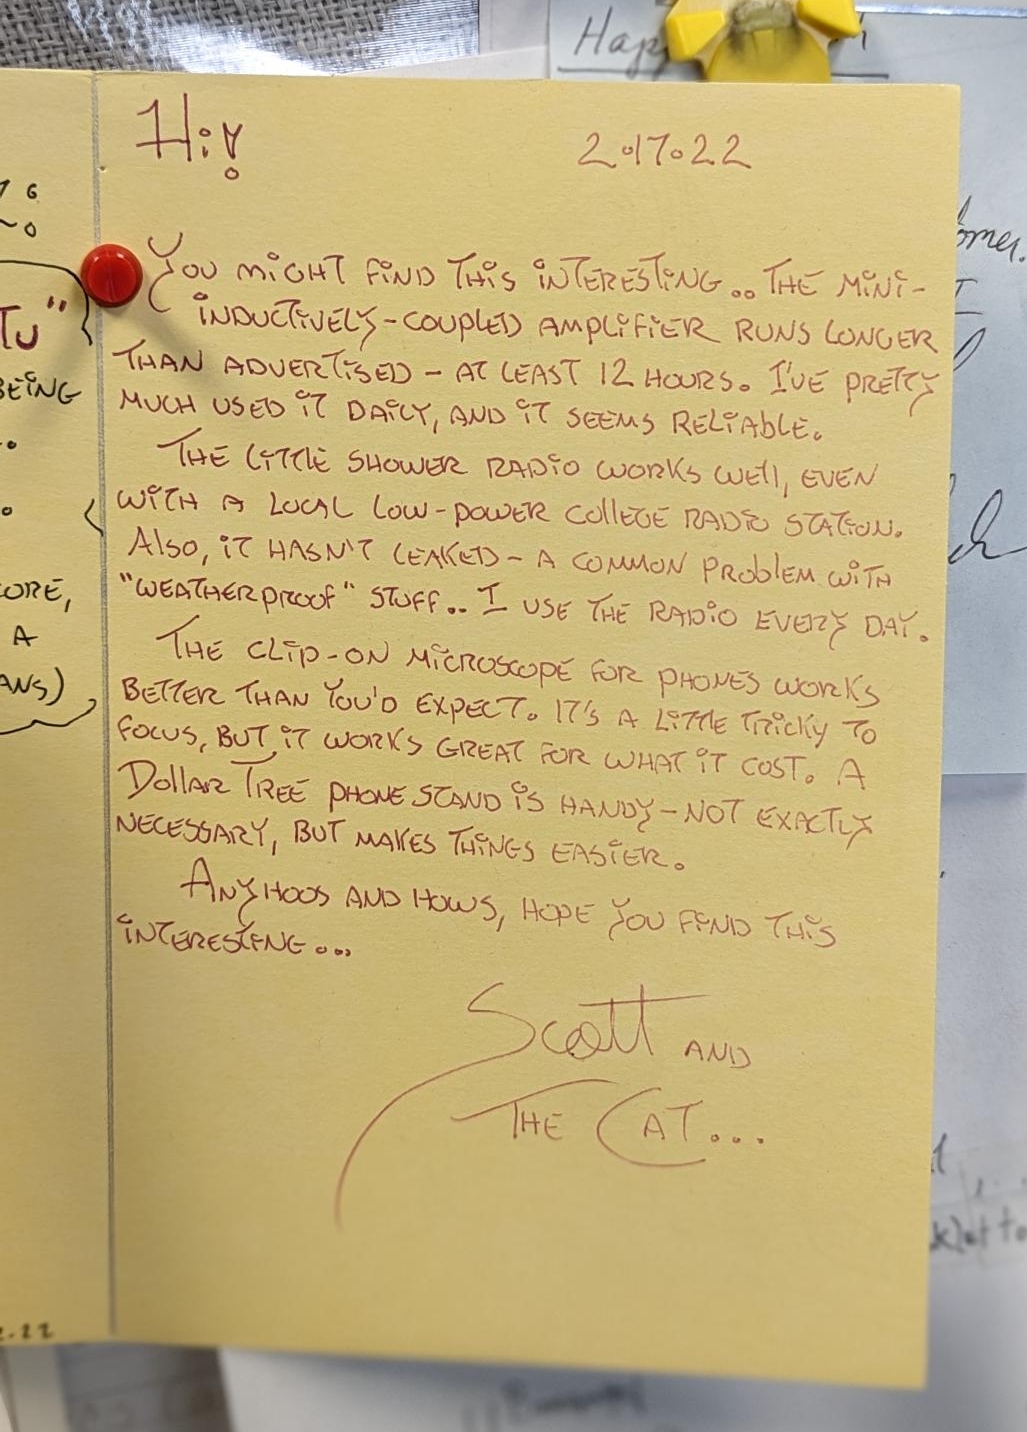 Hap
Hi!
2.17.22
You might find this interesting.. The mini-
inductively-coupled amplifier runs longer
than advertised - at least 12 hours. I've pretty
much used it daily, and it seems reliable.
The little shower radio works well, even
with a local low-power college radio station.
Also, it hasn't leaked - a common problem with
"weatherproof" stuff.. I use the radio every day.
The clip-on microscope for phones works
better than you'd expect. It's a little tricky to
focus, but it works great for what it cost. A
Dollar Tree phone stand is handy - not exactly
necessary, but makes things easier.
Anyhoos and hows, hope you find this
interesting...
Scott and
The Cat...
6
Tu"
BEING
CORE,
A
ANS)
2.22
omer.
I